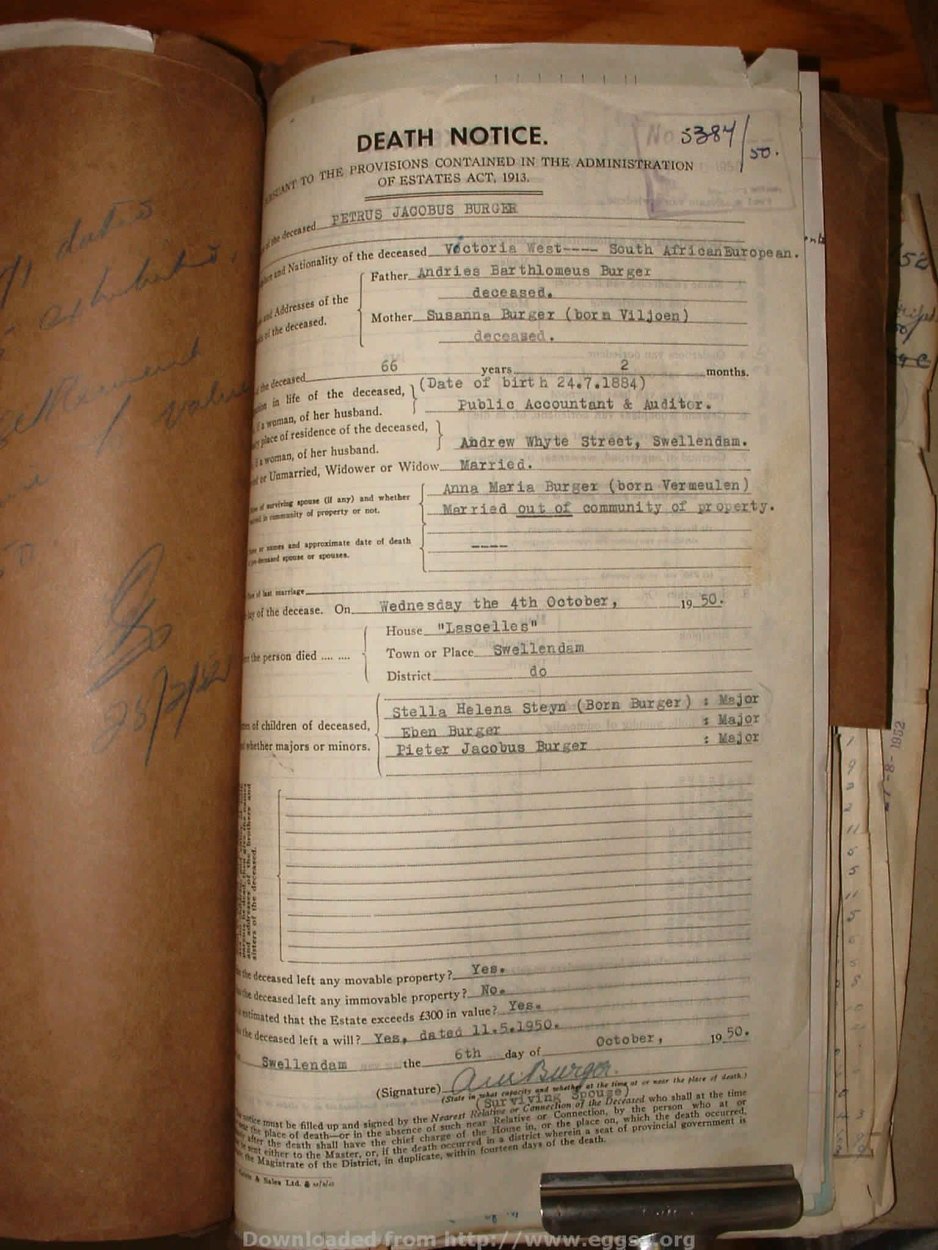 DEATH NOTICE.
No 5384/50.
TO THE PROVISIONS CONTAINED IN THE ADMINISTRATION
OF ESTATES ACT, 1913.
of the deceased PETRUS JACOBUS BURGER
and Nationality of the deceased Victoria West---- South AfricanEuropean.
Father Andries Barthlomeus Burger
deceased.
and Addresses of the
of the deceased.
Mother Susanna Burger (born Viljoen)
deceased.
the deceased 66 years 2 months.
(Date of birth 24.7.1884)
in life of the deceased,
a woman, of her husband.
Public Accountant & Auditor.
place of residence of the deceased,
a woman, of her husband.
Andrew Whyte Street, Swellendam.
or Unmarried, Widower or Widow Married.
of surviving spouse (if any) and whether
in community of property or not.
Anna Maria Burger (born Vermeulen)
Married out of community of property.
or names and approximate date of death
spouse or spouses.
----
of last marriage
of the decease. On Wednesday the 4th October, 19 50.
House "Lascelles"
the person died .... ....
Town or Place Swellendam
District do
of children of deceased,
whether majors or minors.
Stella Helena Steyn (Born Burger) : Major
Eben Burger : Major
Pieter Jacobus Burger : Major
and addresses of the brothers and
sisters of the deceased.
the deceased left any movable property? Yes.
the deceased left any immovable property? No.
estimated that the Estate exceeds £300 in value? Yes.
the deceased left a will? Yes, dated 11.5.1950.
Swellendam the 6th day of October, 19 50.
(Signature) Burger.
(State in what capacity and whether at the time at or near the place of death.)
(Surviving Spouse)
notice must be filled up and signed by the Nearest Relative or Connection of the Deceased who shall at the time
the place of death—or in the absence of such near Relative or Connection, by the person who at or
after the death shall have the chief charge of the House in, or the place on, which the death occurred,
sent either to the Master, or, if the death occurred in a district wherein a seat of provincial government is
the Magistrate of the District, in duplicate, within fourteen days of the death.
& Sales Ltd.
dates
value
28/2/52
-8-1952
Downloaded from http://www.eggsa.org